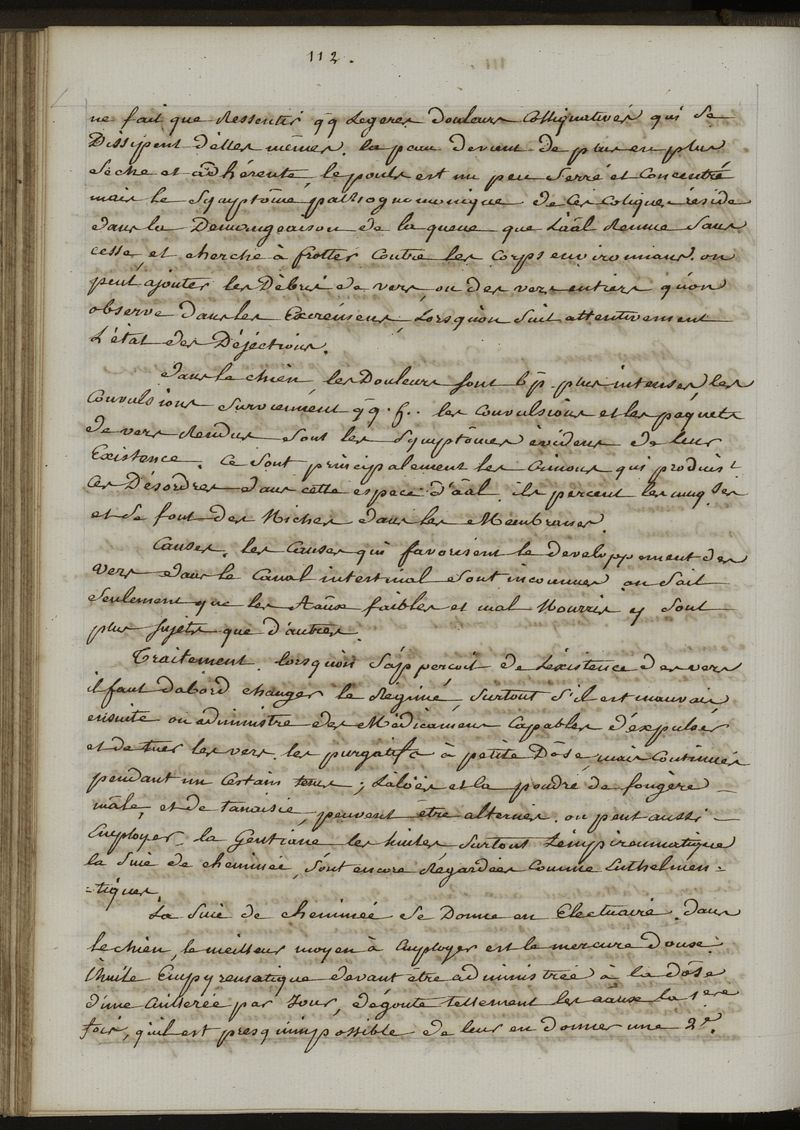 112.
ne fait que Ressentir qq Legeres Douleurs qui se
Dissipent d'elles mêmes. la peau devient de plus en plus
séche et adhérente, le pouls est un peu Serré et Concentré
mais le Symptôme pathognomonique de Ces Coliques réside
dans la Demangeaison de la queue que L'aãl Remue Sans
cesse, et cherche à frotter Contre les Corps environnans. on
peut ajouter les Débris de vers, ou des vers entiers qu'on
observe Dans les Excrémens, Lorsqu'on Suit attentivement
L'état des Déjections.
Dans le chien, les Douleurs sont bp plus intenses, les
Convulsions Surviennent qq.f.. les Convulsions et les paquets
de vers Rendus Sont les Symptômes évidens de leur
Existence. Ce Sont principalement les qui produist
Ces Désordres dans cette espece d'aãl. ils percent les muqses
et Se font des Niches dans les Membranes.
Causes. les Causes qui favorisent le developpement des
vers dans le Canal intestinal Sont inconnues on Sait
Seulement que les Aãux faibles et mal Nourris y Sont
plus Sujets que d'autres.
Traitement. lorsqu'on S'apperçoit de L'éxistence des vers
il faut d'abord changer le Régime, Surtout S'il est mauvais
ensuite on administre des Médicamens Capables d'expulser
et de tuer les vers. les purgatifs à petite Dôse, mais Continués
pendant un Certain tems; L'aloës et la poudre de fougère
mâle, et de tanaisie, peuvent être alternés. on peut aussi
Employer la Gentiane les huiles Surtout L'empireumatique
la Suie de cheminée, Sont encore Régardées Comme Anthelmen-
-tiques.
La Suie de cheminée Se Donne en Electuaire. Dans
le chien, le meilleur moyen à Employer est le mercure doux.
L'huile Empyreumatique devant être administrée à la dôse
d'une Cuilerée par Jour, dégoute tellement les aãux la 1ere
fois, qu'il est presqu'impossible de leur en donner une 2e.